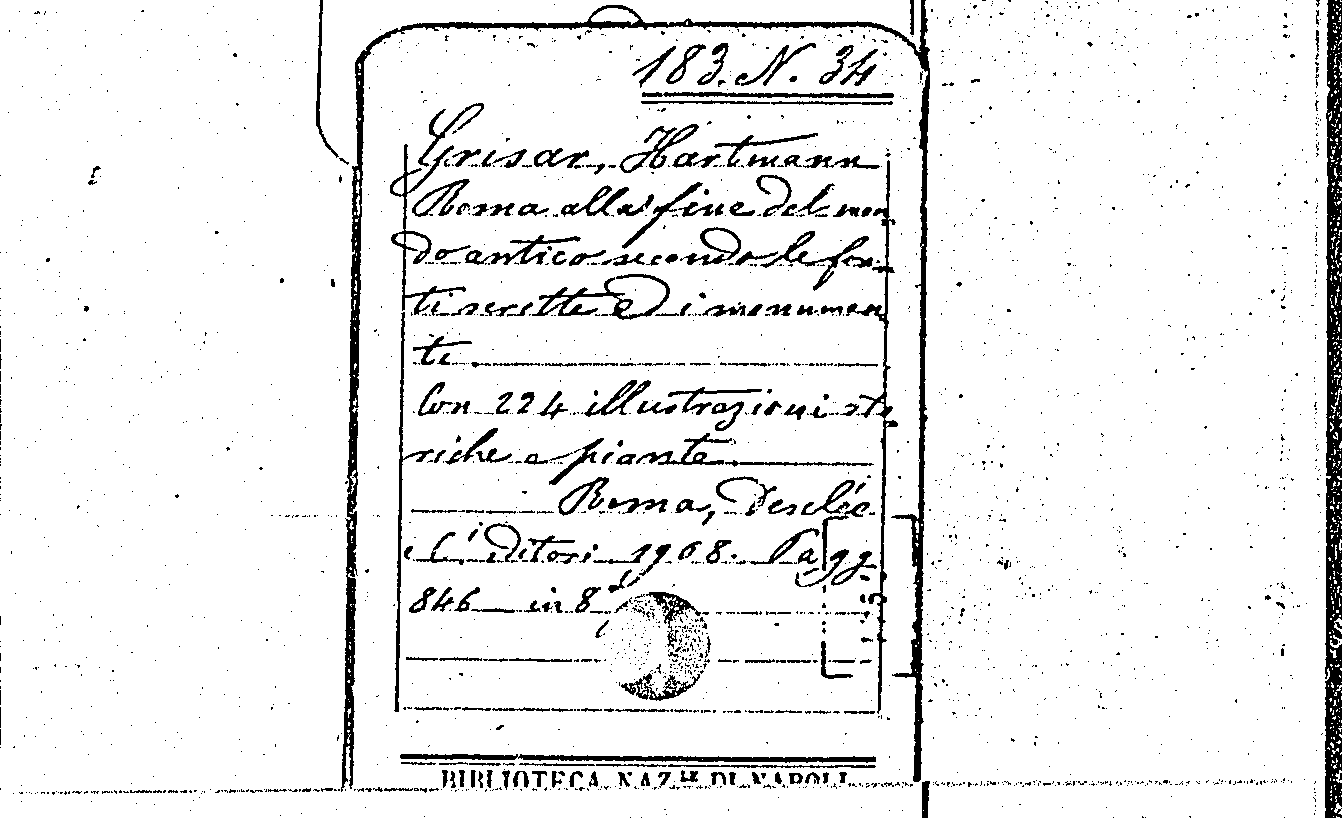 183. N. 34
Grisar, Hartmann
Roma alla fine del mon
do antico secondo le fon
ti scritte ed i monumen
ti.
Con 224 illustrazioni sto
riche e piante.
Roma, Desclée
e C.i editori 1908. Pagg.
846 in 8º
BIBLIOTECA NAZ.LE DI NAPOLI